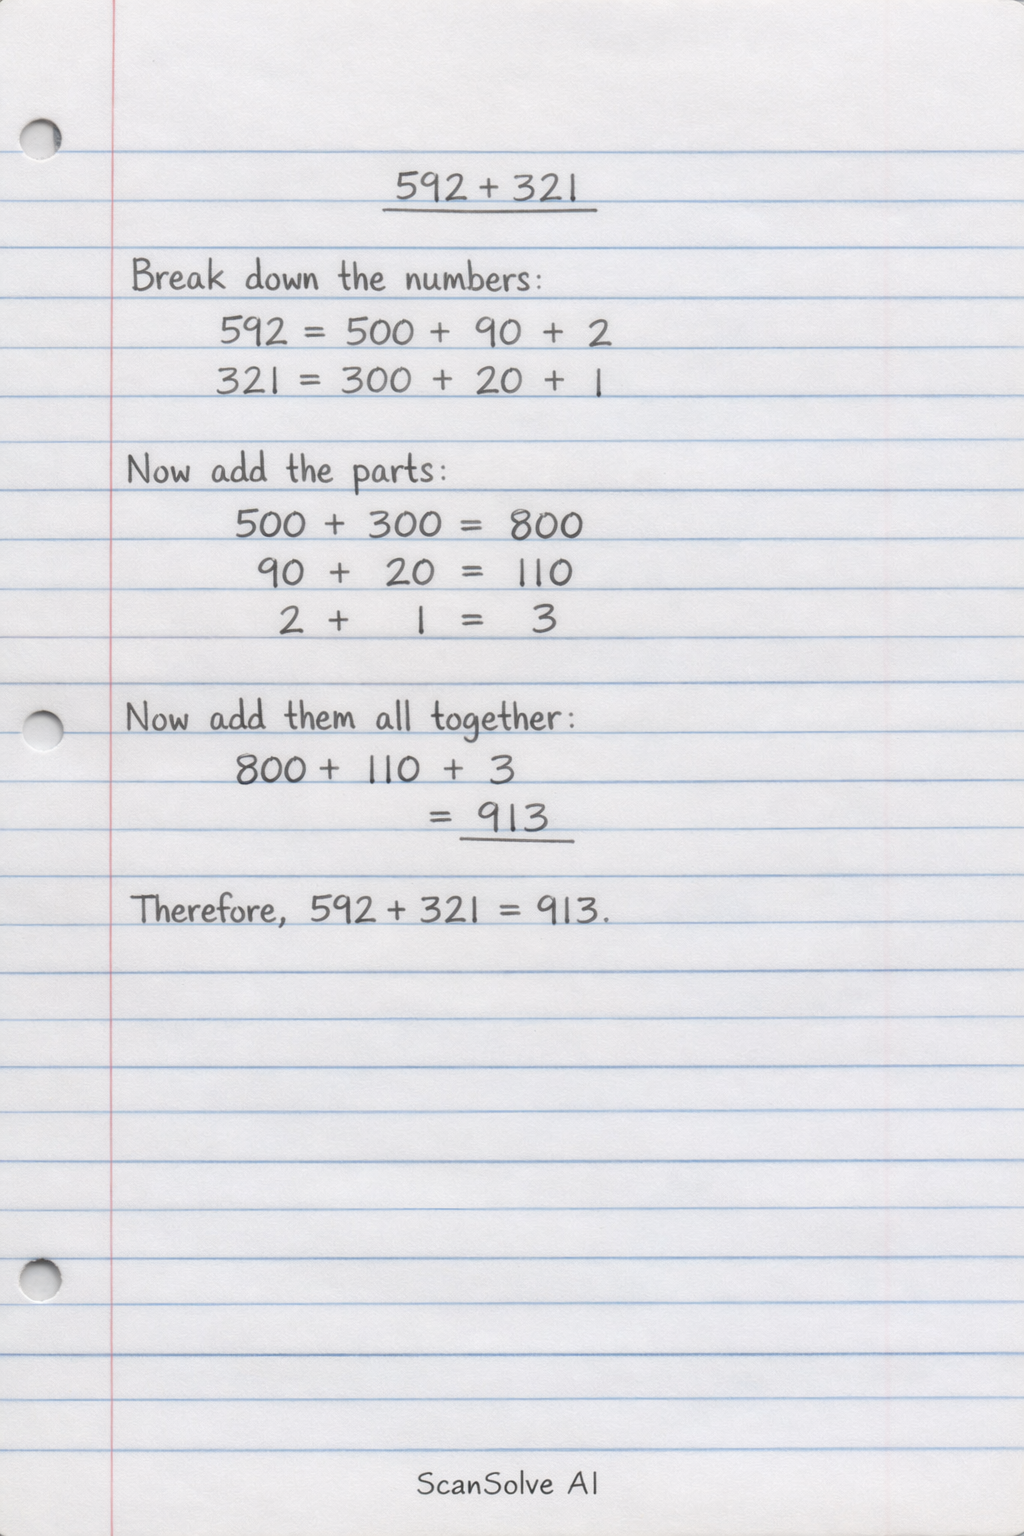 592 + 321
Break down the numbers:
592 = 500 + 90 + 2
321 = 300 + 20 + 1
Now add the parts:
500 + 300 = 800
90 + 20 = 110
2 + 1 = 3
Now add them all together:
800 + 110 + 3
= 913
Therefore, 592 + 321 = 913.
ScanSolve AI